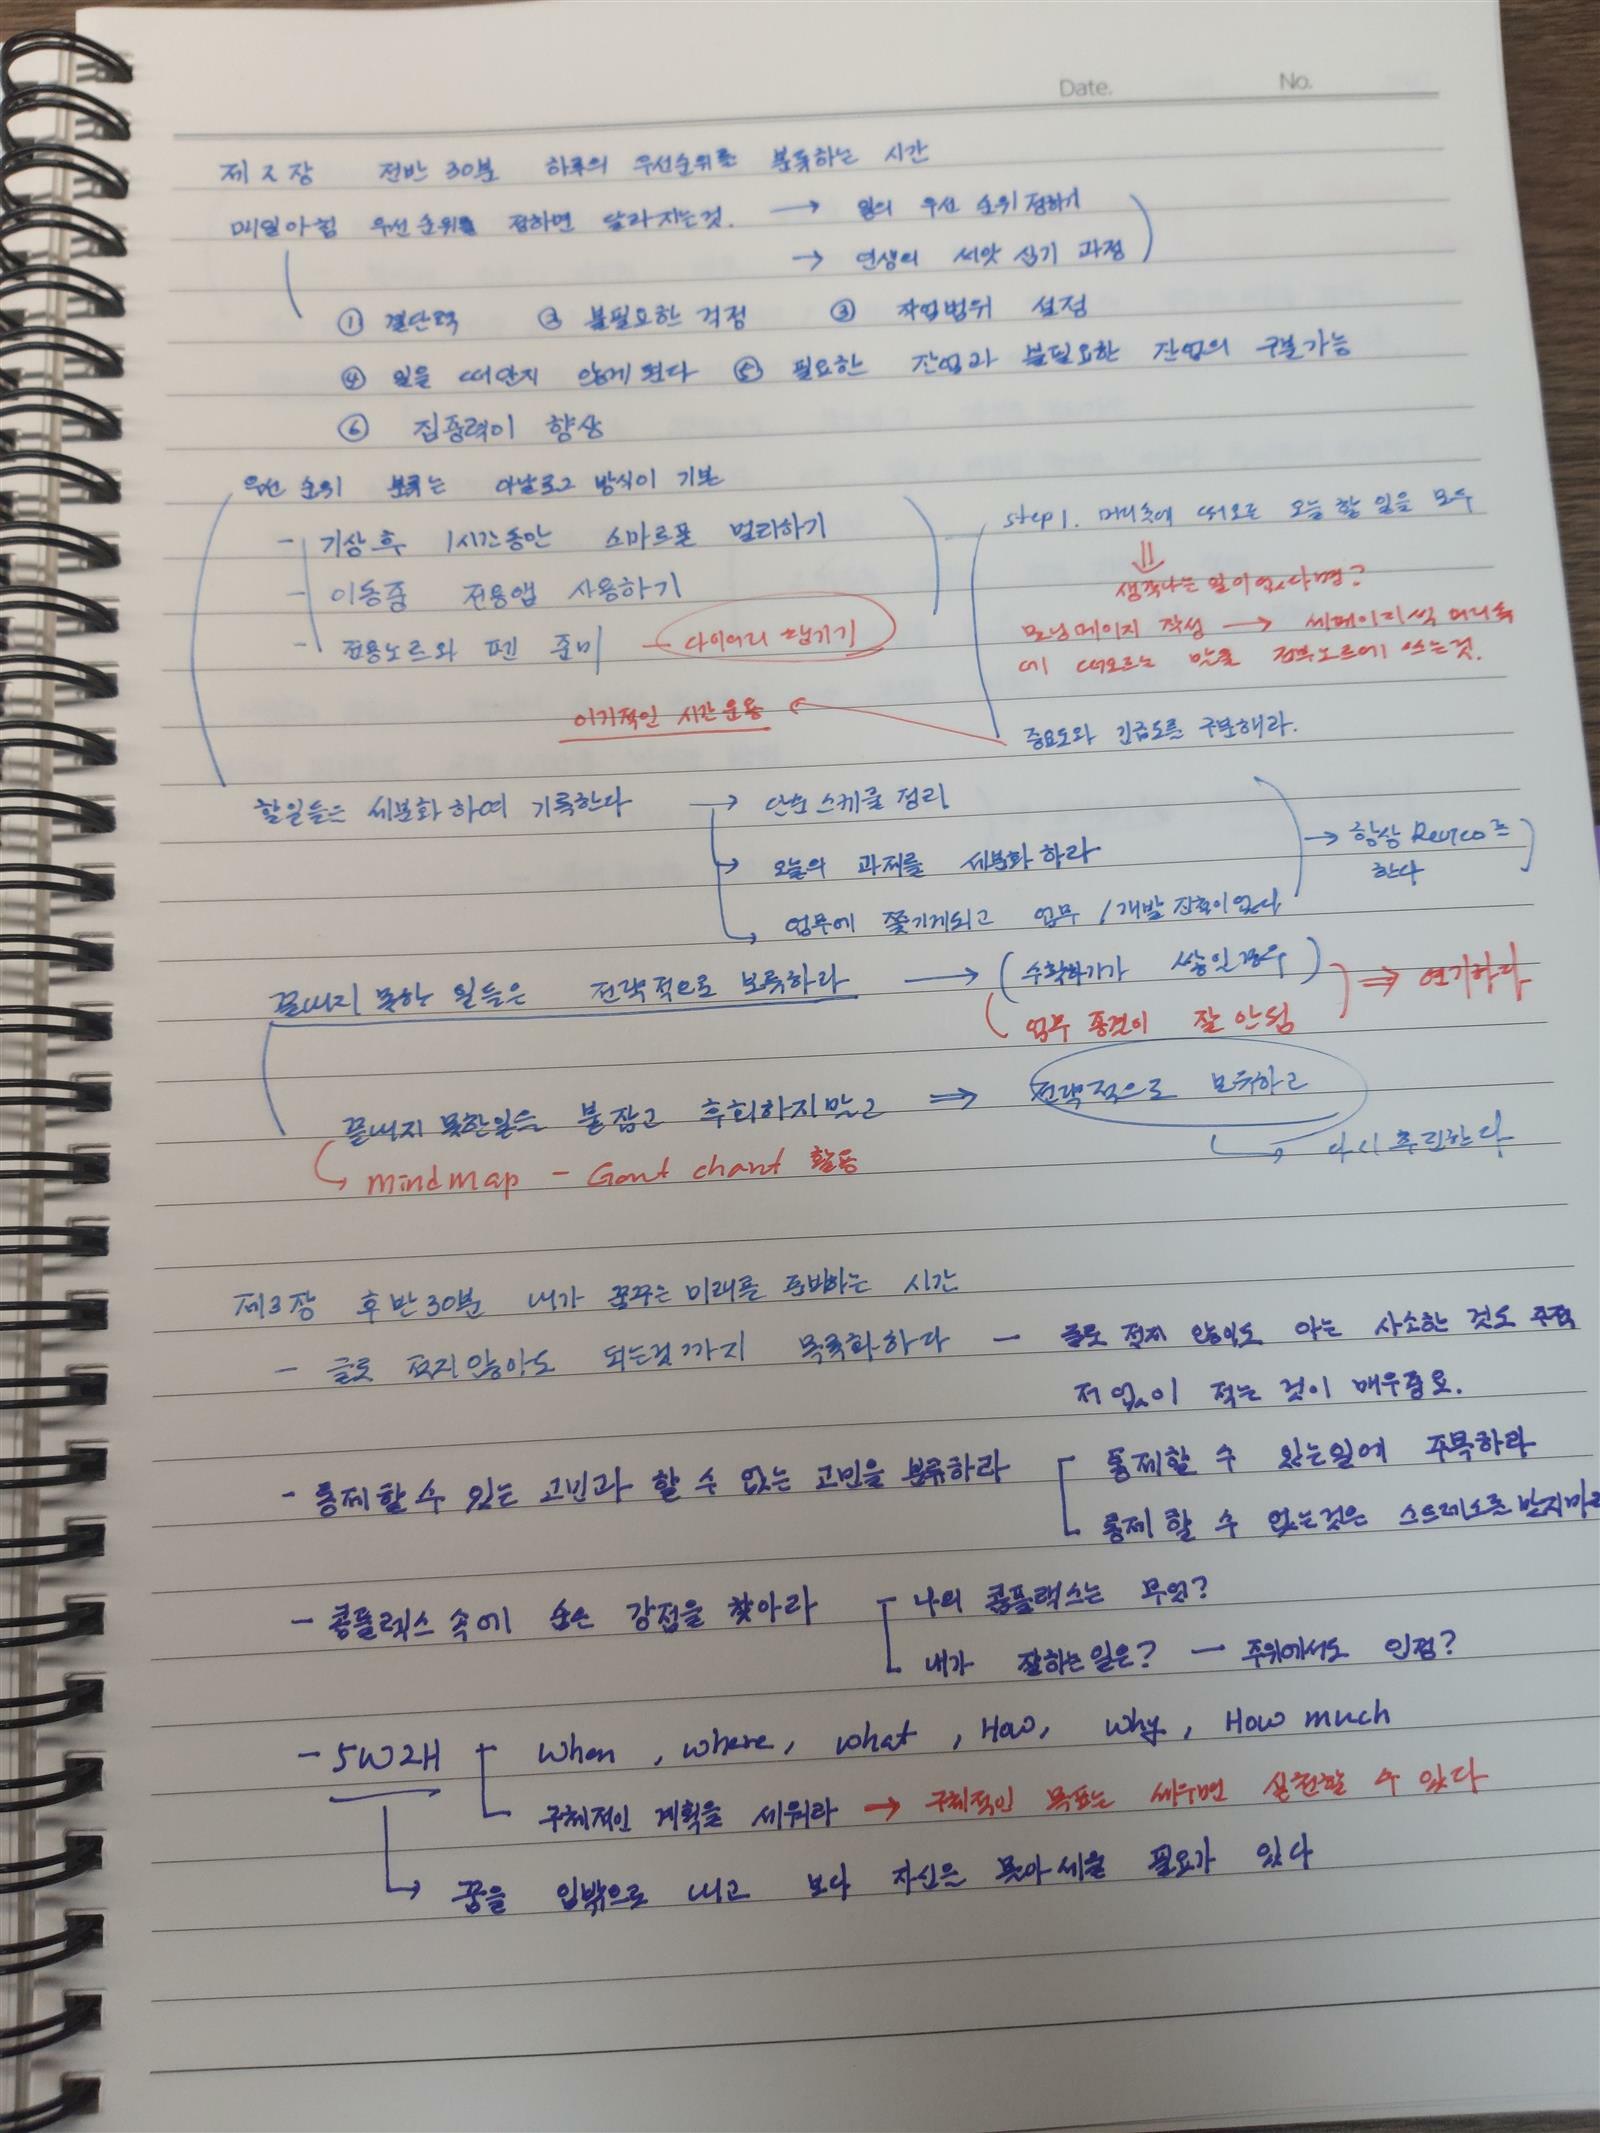 Date. No.
제 2 장 전반 30분 하루의 우선순위를 분류하는 시간
매일아침 우선순위를 정하면 달라지는것. → 일의 우선 순위 정하기
→ 인생의 씨앗 심기 과정
① 결단력 ② 불필요한 걱정 ③ 작업범위 설정
④ 일을 떠안지 않게 된다 ⑤ 필요한 잔업과 불필요한 잔업의 구분가능
⑥ 집중력이 향상
우선 순위 분류는 아날로그 방식이 기본
- 기상후 1시간동안 스마트폰 멀리하기
- 이동중 전용앱 사용하기
- 전용노트와 펜 준비 - 다이어리 챙기기
step 1. 머리속에 떠오른 오늘 할 일을 모두
⇓
생각나는 일이 없다면?
모닝페이지 작성 → 세페이지씩 머리속
에 떠오르는 것을 전부노트에 쓰는것.
이기적인 시간운용
중요도와 긴급도를 구분해라.
할일들은 세분화하여 기록한다 → 단순 스케줄 정리
→ 오늘의 과제를 세분화하라
→ 업무에 쫓기게되고 업무 / 개발 진척이 없다
→ 항상
한다
끝내지 못한 일들은 전략적으로 보류하라 → ( 수확하기가 쌓인경우 )
업무 종결이 잘 안됨 ⇒ 연기하라
끝내지 못한일을 붙잡고 후회하지말고 ⇒ 전략적으로 보류하고
→ 다시 추진한다
→ mindmap - Gant chart 활용
제3장 후반30분 내가 꿈꾸는 미래를 준비하는 시간
- 글로 적지않아도 되는것까지 목록화하다 - 글로 적지 않아도 아는 사소한 것도 주저
저 없이 적는 것이 매우중요.
- 통제할수 있는 고민과 할 수 없는 고민을 분류하라
통제할 수 있는일에 주목하라
통제 할 수 없는것은 스트레스를 받지마라
- 콤플렉스 속에 숨은 강점을 찾아라
나의 콤플렉스는 무엇?
내가 잘하는일은? - 주위에서도 인정?
- 5W2H When, where, what, How, why, How much
구체적인 계획을 세워라 → 구체적인 목표는 세우면 실천할 수 있다
→ 꿈을 입밖으로 내고 보다 자신을 몰아세울 필요가 있다